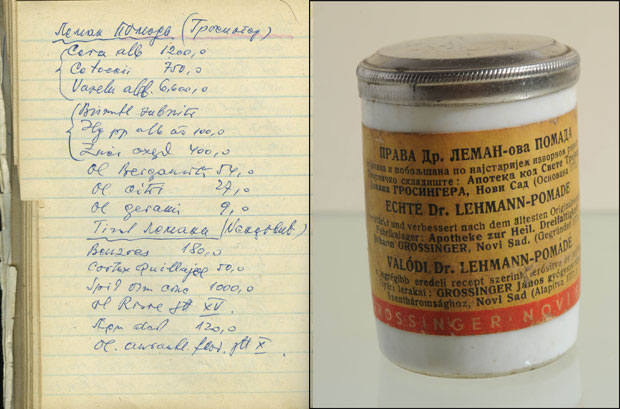 Леман Помада (Гросингер)
Cera alb 1200,0
Cetacei 750,0
Vaselin alb. 6.600,0
Bismut subnitr
Hg pp alb aa 100,0
Zinci oxyd 400,0
Ol Bergamotti 54,0
Ol citri 27,0
Ol gerami 9,0
Benzoes 180,0
Cortex Quillajae 50,0
Spir 1000,0
Ol Rosae gtt XV
120,0
Ol. aurant. flor. gtt X.
ПРАВА Др. ЛЕМАН-ова ПОМАДА
и побољшана по најстаријем изворном
складиште: Апотека код Свете
ГРОСИНГЕРА, Нови Сад (Основана
ECHTE Dr. LEHMANN-POMADE
und verbessert nach dem ältesten Original
Fabrikslager: Apotheke zur Heil. Dreifaltigkeit
GROSSINGER, Novi Sad. (Gegründet
VALÓDI Dr. LEHMANN-POMADE
legrégibb eredeti recept szerint
lerakni: GROSSINGER János
Szentháromsághoz, Novi Sad (Alapítva
ROSSINGER·NOVI